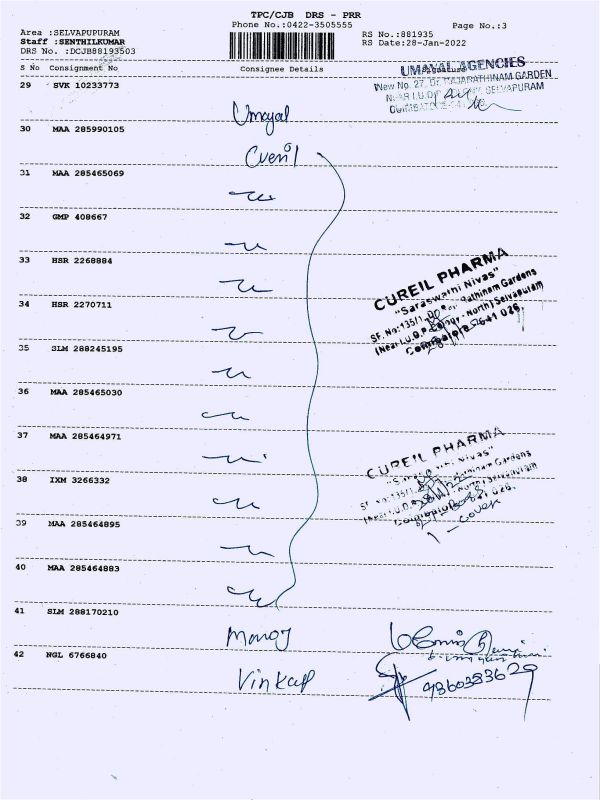 TPC/CJB DRS - PRR
Phone No.:0422-3505555
Page No.:3
Area :SELVAPUPURAM
Staff :SENTHILKUMAR
DRS No. :DCJB88193503
RS No.:881935
RS Date:28-Jan-2022
S No Consignment No Consignee Details Signature
UMAYAL AGENCIES
New No. 27, Dr. RAJARATHINAM GARDEN
NEAR I.U.D.P. COLONY, SELVAPURAM
COIMBATORE-641 026.
29 SVK 10233773
Umayal
30 MAA 285990105
Cureil
31 MAA 285465069
32 GMP 408667
33 HSR 2268884
CUREIL PHARMA
"Saraswathi Nivas"
SF. No:135/1, Rathinam Gardens
(Near I.U.D.P. Colony - North) Selvapuram
Coimbatore - 641 026.
34 HSR 2270711
35 SLM 288245195
36 MAA 285465030
37 MAA 285464971
CUREIL PHARMA
"Saraswathi Nivas"
SF. No:135/1, Rathinam Gardens
(Near I.U.D.P. Colony - North) Selvapuram
Coimbatore - 641 026.
1 - cover
38 IXM 3266332
39 MAA 285464895
40 MAA 285464883
41 SLM 288170210
Manoj
42 NGL 6766840
9360383629